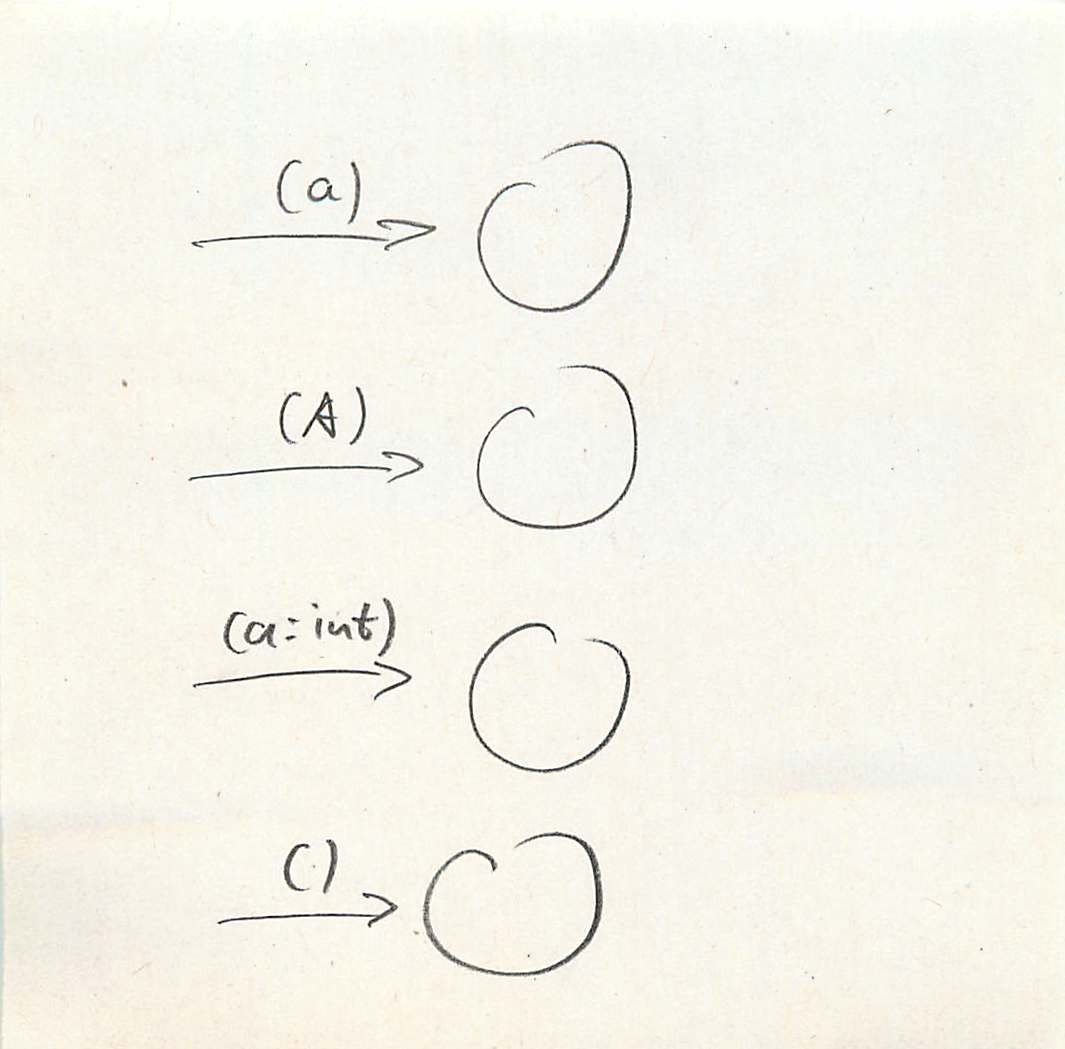 (a)
(A)
(a:int)
()